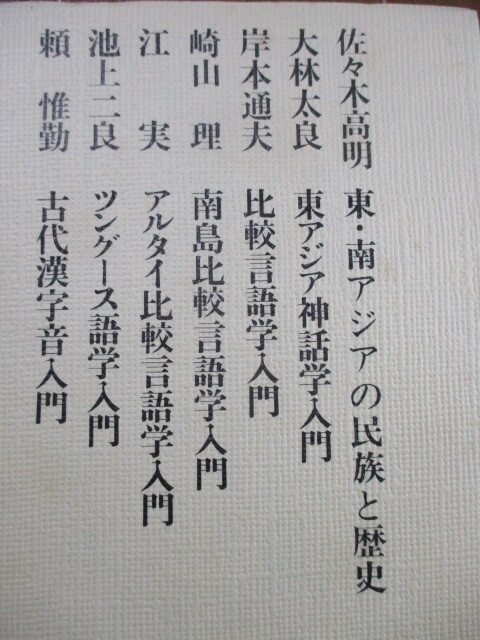 佐々木高明 東・南アジアの民族と歴史
大林太良 東アジア神話学入門
岸本通夫 比較言語学入門
崎山 理 南島比較言語学入門
江 実 アルタイ比較言語学入門
池上二良 ツングース語学入門
頼 惟勤 古代漢字音入門